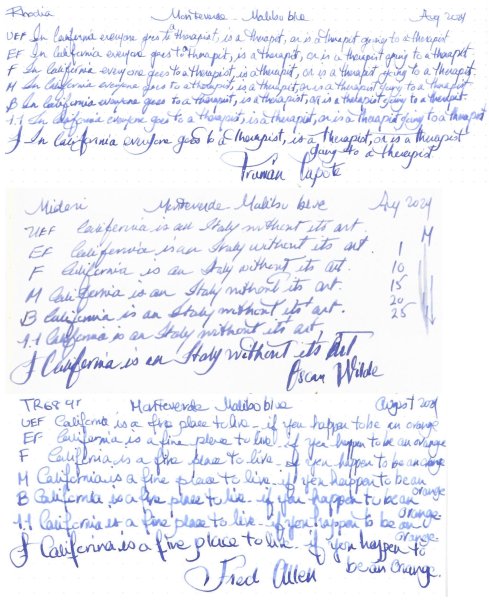 Rhodia Monteverde - Malibu blue Aug 2024
UEF In California everyone goes to a therapist, is a therapist, or is a therapist going to a therapist
EF In California everyone goes to a therapist, is a therapist, or is a therapist going to a therapist.
F In California everyone goes to a therapist, is a therapist, or is a therapist going to a therapist.
M In California everyone goes to a therapist, is a therapist, or is a therapist going to a therapist
B In California everyone goes to a therapist, is a therapist, or is a therapist going to a therapist.
1.1 In California everyone goes to a therapist, is a therapist, or is a therapist going to a therapist
f In California everyone goes to a therapist, is a therapist, or is a therapist
going to a therapist
Truman Capote
Midori Monteverde Malibu blue Aug 2024
UEF California is an Italy without its art. M
EF California is an Italy without its art. 1
F California is an Italy without its art. 10
M California is an Italy without its art. 15
B California is an Italy without its art. 20
25
1.1 California is an Italy without its art,
f California is an Italy without its Art
Oscar Wilde
TR68 gr Monteverde Malibu blue August 2024
UEF California is a fine place to live - if you happen to be an orange
EF California is a fine place to live - if you happen to be an orange
F California is a fine place to live - if you happen to be an orange
M California is a fine place to live - if you happen to be an
orange
B California is a fine place to live - if you happen to be an
orange
1.1 California is a fine place to live - if you happen to be an
orange
f California is a fine place to live - if you happen to
be an orange.
Fred Allen